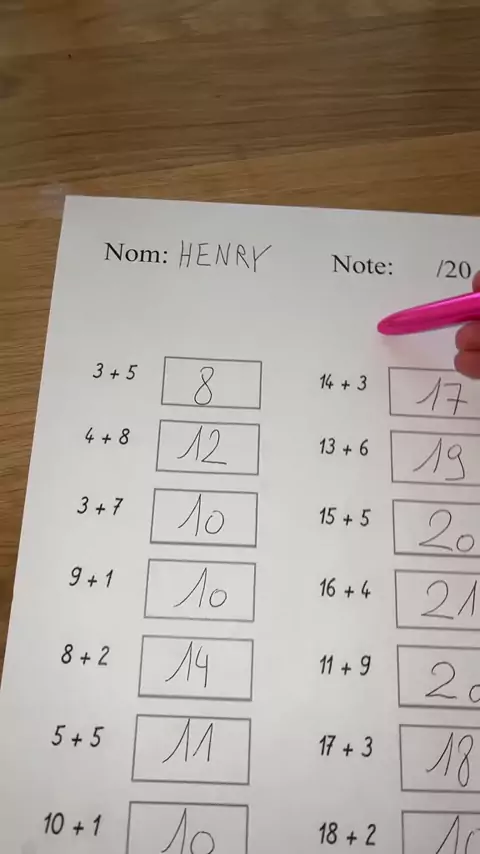 Nom: HENRY Note: /20
3 + 5 8 14 + 3 17
4 + 8 12 13 + 6 19
3 + 7 10 15 + 5 20
9 + 1 10 16 + 4 21
8 + 2 14 11 + 9 20
5 + 5 11 17 + 3 18
10 + 1 10 18 + 2